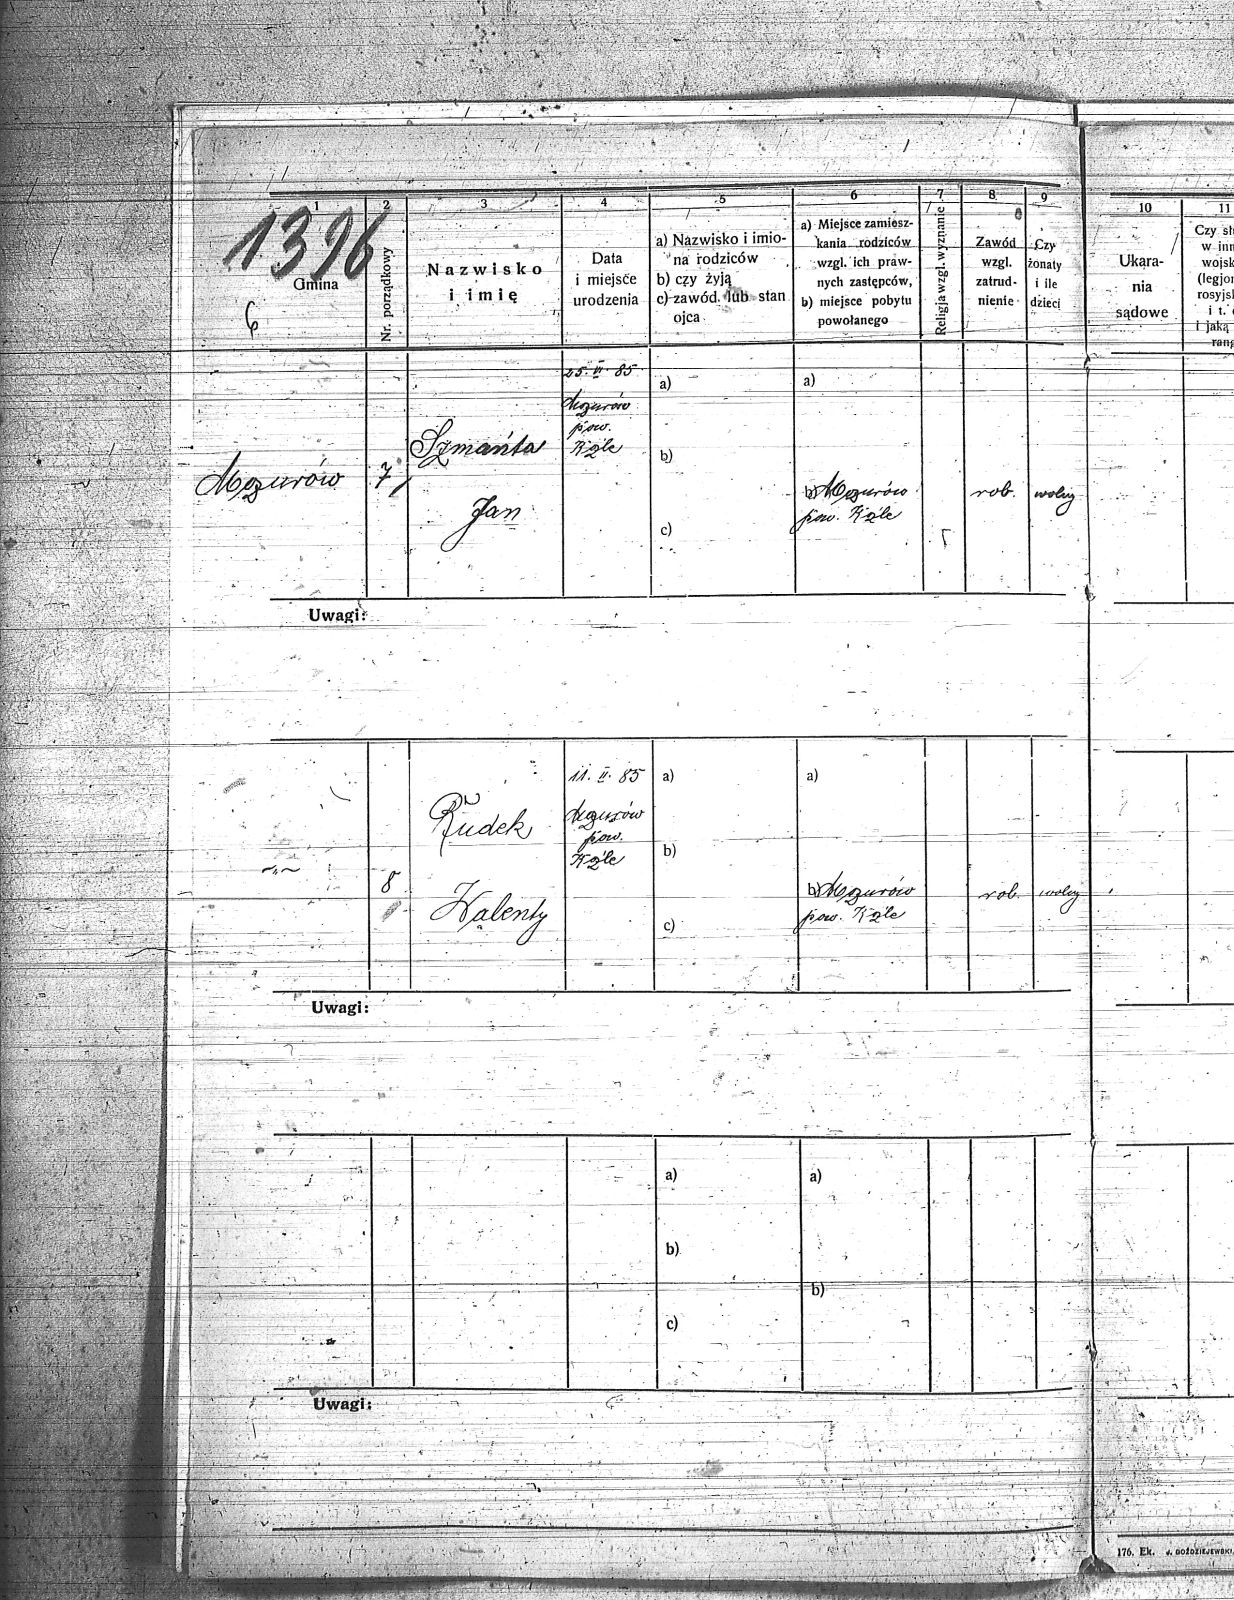 1396
6
1
Gmina
2
Nr. porządkowy
3
Nazwisko
i imię
4
Data
i miejsce
urodzenia
5
a) Nazwisko i imio-
na rodziców
b) czy żyją
c) zawód lub stan
ojca
6
a) Miejsce zamiesz-
kania rodziców
wzgl. ich praw-
nych zastępców,
b) miejsce pobytu
powołanego
7
Religja wzgl. wyznanie
8
Zawód
wzgl.
zatrud-
nienie
9
Czy
żonaty
i ile
dzieci
10
Ukara-
nia
sądowe
11
Czy sł
w inn
wojsk
(legjon
rosyjsk
i t.
i jaką
rang
Mozurów
7
Szmańta
Jan
25. VI. 85
Mozurów
pow.
Kźle
a)
b)
c)
a)
b) Mozurów
pow. Kźle
rob.
wolny
Uwagi:
~"~
8
Rudek
Walenty
11. II. 85
Mozurów
pow.
Kźle
a)
b)
c)
a)
b) Mozurów
pow. Kźle
rob.
wolny
Uwagi:
a)
b)
c)
a)
b)
Uwagi:
176. Ek. J. GOŹDZIEJEWSKI,